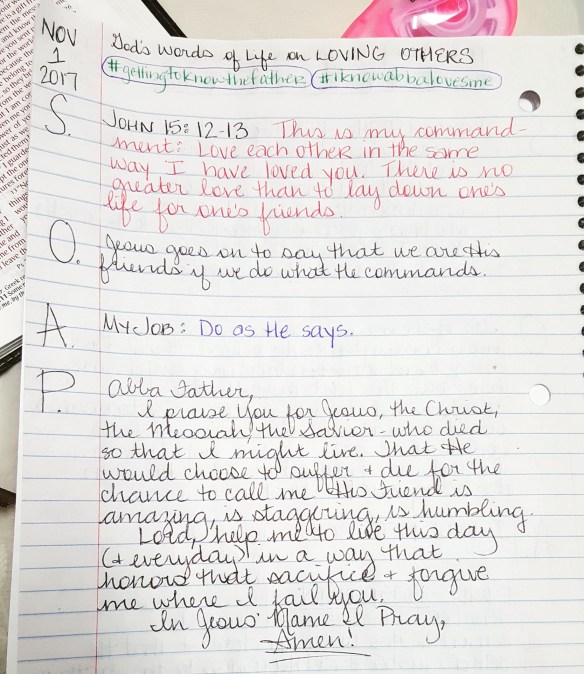 NOV
1
2017
God's Words of Life on LOVING OTHERS
#gettingtoknowthefather #iknowabbalovesme
S. JOHN 15:12-13 This is my command-
ment: Love each other in the same
way I have loved you. There is no
greater love than to lay down one's
life for one's friends.
O. Jesus goes on to say that we are His
friends if we do what He commands.
A. MY JOB: Do as He says.
P. Abba Father,
I praise You for Jesus, the Christ,
the Messiah, the Savior - who died
so that I might live. That He
would choose to suffer + die for the
chance to call me His Friend is
amazing, is staggering, is humbling.
Lord, help me to live this day
(+ everyday) in a way that
honors that sacrifice + forgive
me where I fail You.
In Jesus' Name I Pray,
Amen!